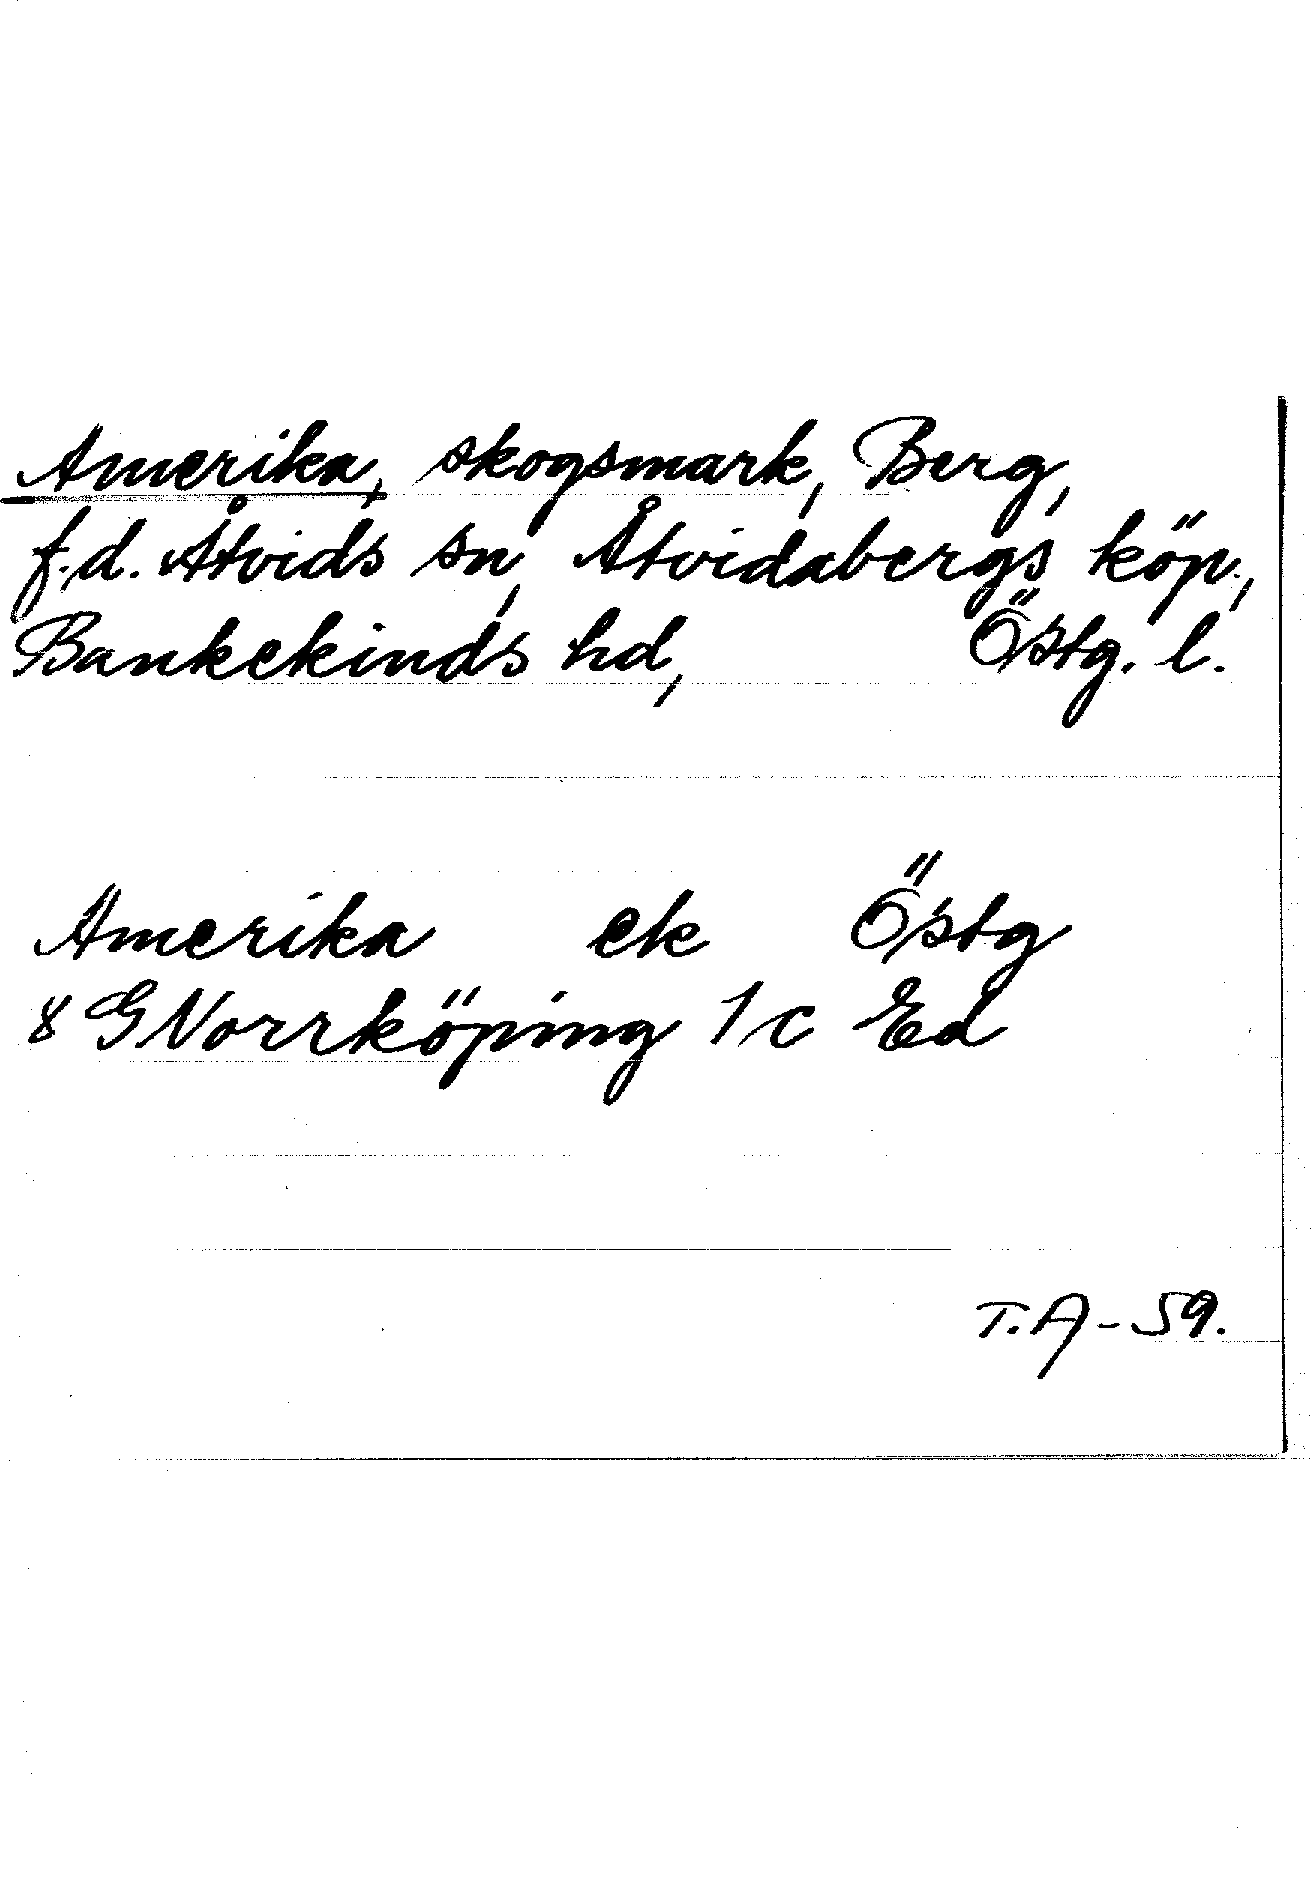 Amerika, skogsmark, Berg,
f.d. Åtvids sn, Åtvidabergs köp.,
Bankekinds hd, Östg. l.
Amerika ek Östg
8 G Norrköping 1 c Ed
T.A-59.